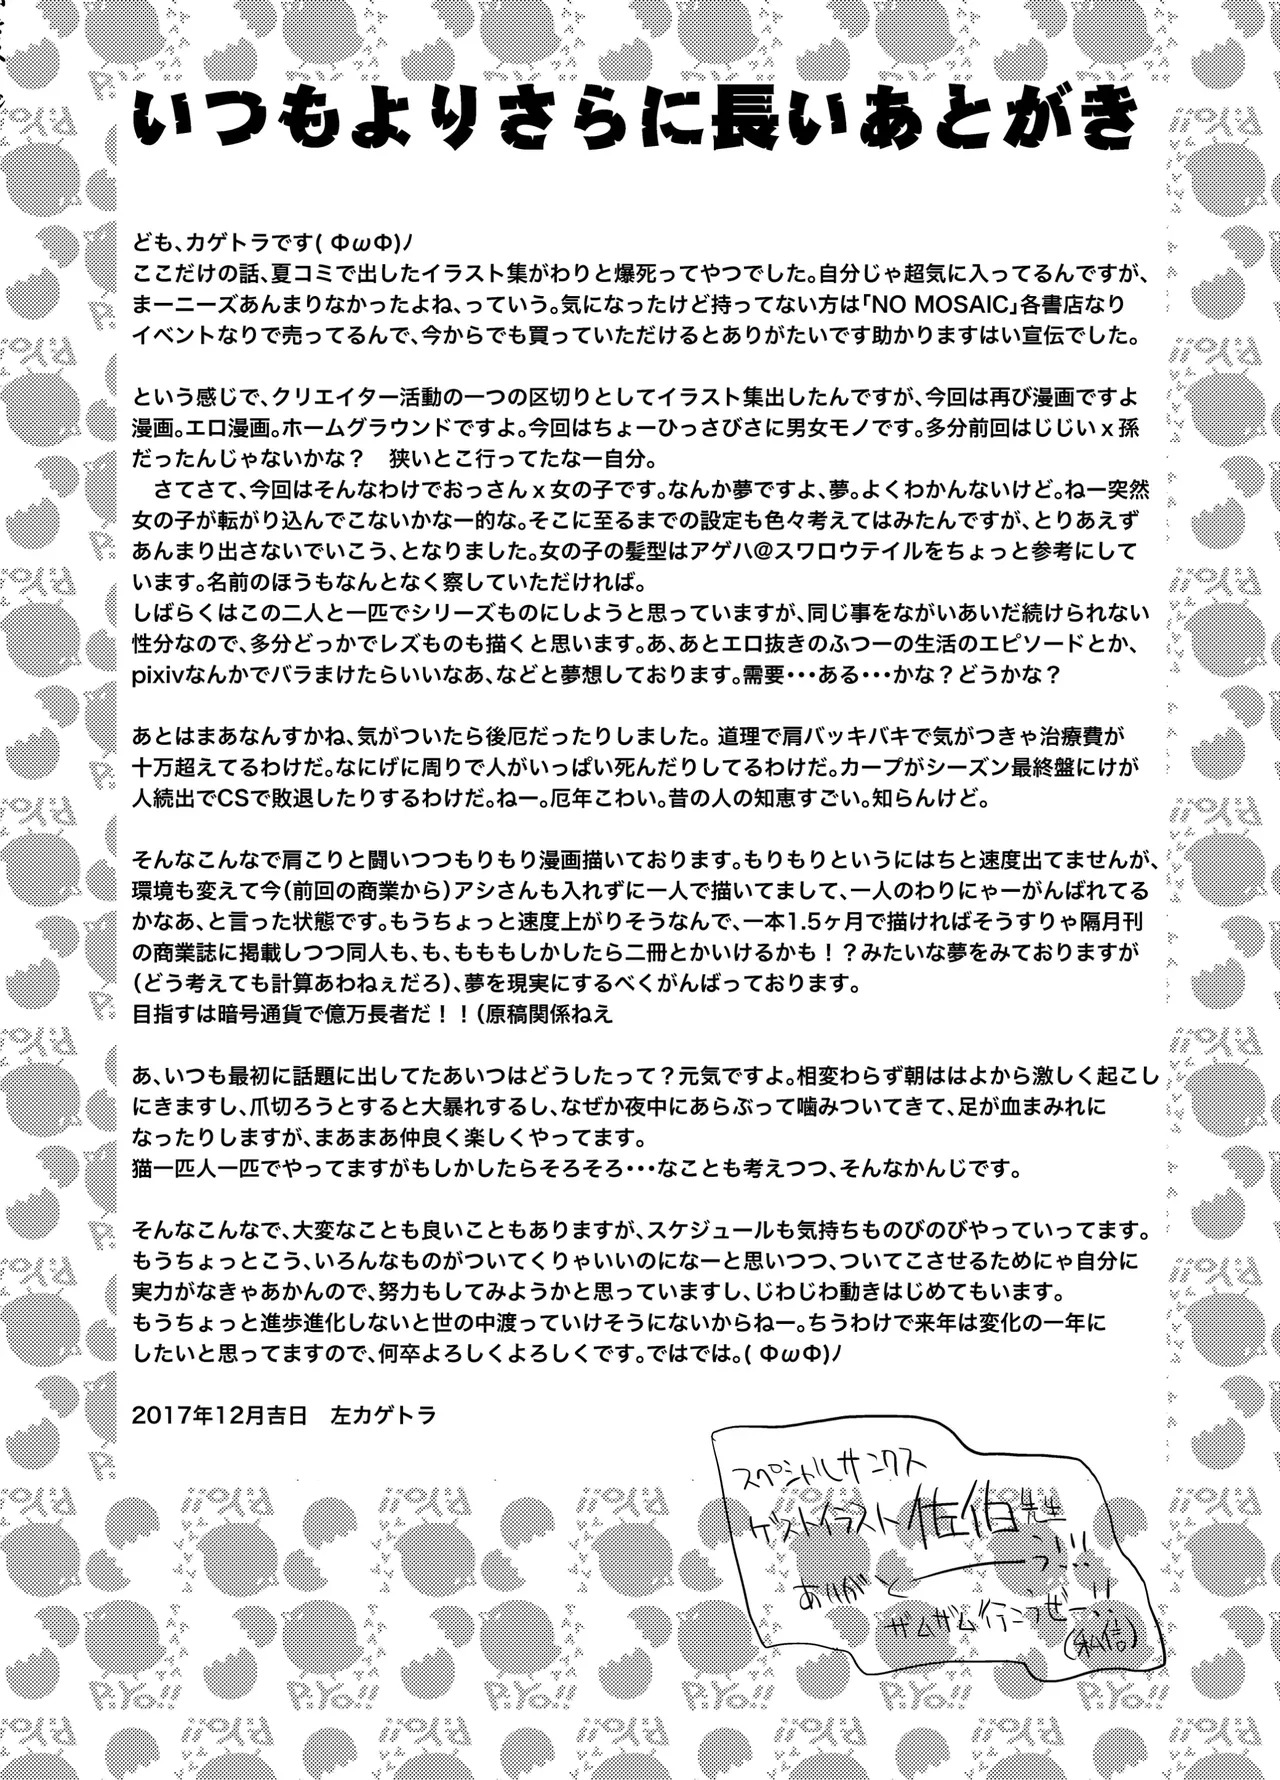 いつもよりさらに長いあとがき
ども、カゲトラです( ΦωΦ)ﾉ
ここだけの話、夏コミで出したイラスト集がわりと爆死ってやつでした。自分じゃ超気に入ってるんですが、
まーニーズあんまりなかったよね、っていう。気になったけど持ってない方は「NO MOSAIC」各書店なり
イベントなりで売ってるんで、今からでも買っていただけるとありがたいです助かりますはい宣伝でした。
という感じで、クリエイター活動の一つの区切りとしてイラスト集出したんですが、今回は再び漫画ですよ
漫画。エロ漫画。ホームグラウンドですよ。今回はちょーひっさびさに男女モノです。多分前回はじじいｘ孫
だったんじゃないかな？　狭いとこ行ってたなー自分。
　さてさて、今回はそんなわけでおっさんｘ女の子です。なんか夢ですよ、夢。よくわかんないけど。ねー突然
女の子が転がり込んでこないかなー的な。そこに至るまでの設定も色々考えてはみたんですが、とりあえず
あんまり出さないでいこう、となりました。女の子の髪型はアゲハ@スワロウテイルをちょっと参考にして
います。名前のほうもなんとなく察していただければ。
しばらくはこの二人と一匹でシリーズものにしようと思っていますが、同じ事をながいあいだ続けられない
性分なので、多分どっかでレズものも描くと思います。あ、あとエロ抜きのふつーの生活のエピソードとか、
pixivなんかでバラまけたらいいなあ、などと夢想しております。需要･･･ある･･･かな？どうかな？
あとはまあなんすかね、気がついたら後厄だったりしました。 道理で肩バッキバキで気がつきゃ治療費が
十万超えてるわけだ。なにげに周りで人がいっぱい死んだりしてるわけだ。カープがシーズン最終盤にけが
人続出でCSで敗退したりするわけだ。ねー。厄年こわい。昔の人の知恵すごい。知らんけど。
そんなこんなで肩こりと闘いつつもりもり漫画描いております。もりもりというにはちと速度出てませんが、
環境も変えて今（前回の商業から）アシさんも入れずに一人で描いてまして、一人のわりにゃーがんばれてる
かなあ、と言った状態です。もうちょっと速度上がりそうなんで、一本1.5ヶ月で描ければそうすりゃ隔月刊
の商業誌に掲載しつつ同人も、も、もももしかしたら二冊とかいけるかも！？みたいな夢をみておりますが
（どう考えても計算あわねぇだろ）、夢を現実にするべくがんばっております。
目指すは暗号通貨で億万長者だ！！（原稿関係ねえ
あ、いつも最初に話題に出してたあいつはどうしたって？元気ですよ。相変わらず朝ははよから激しく起こし
にきますし、爪切ろうとすると大暴れするし、なぜか夜中にあらぶって噛みついてきて、足が血まみれに
なったりしますが、まあまあ仲良く楽しくやってます。
猫一匹人一匹でやってますがもしかしたらそろそろ･･･なことも考えつつ、そんなかんじです。
そんなこんなで、大変なことも良いこともありますが、スケジュールも気持ちものびのびやっていってます。
もうちょっとこう、いろんなものがついてくりゃいいのになーと思いつつ、ついてこさせるためにゃ自分に
実力がなきゃあかんので、努力もしてみようかと思っていますし、じわじわ動きはじめてもいます。
もうちょっと進歩進化しないと世の中渡っていけそうにないからねー。ちうわけで来年は変化の一年に
したいと思ってますので、何卒よろしくよろしくです。ではでは。( ΦωΦ)ﾉ
2017年12月吉日　左カゲトラ
スペシャルサンクス
ゲストイラスト 佐伯先生
ありがとーう!!!
ザムザム行こうぜー!!
(私信)